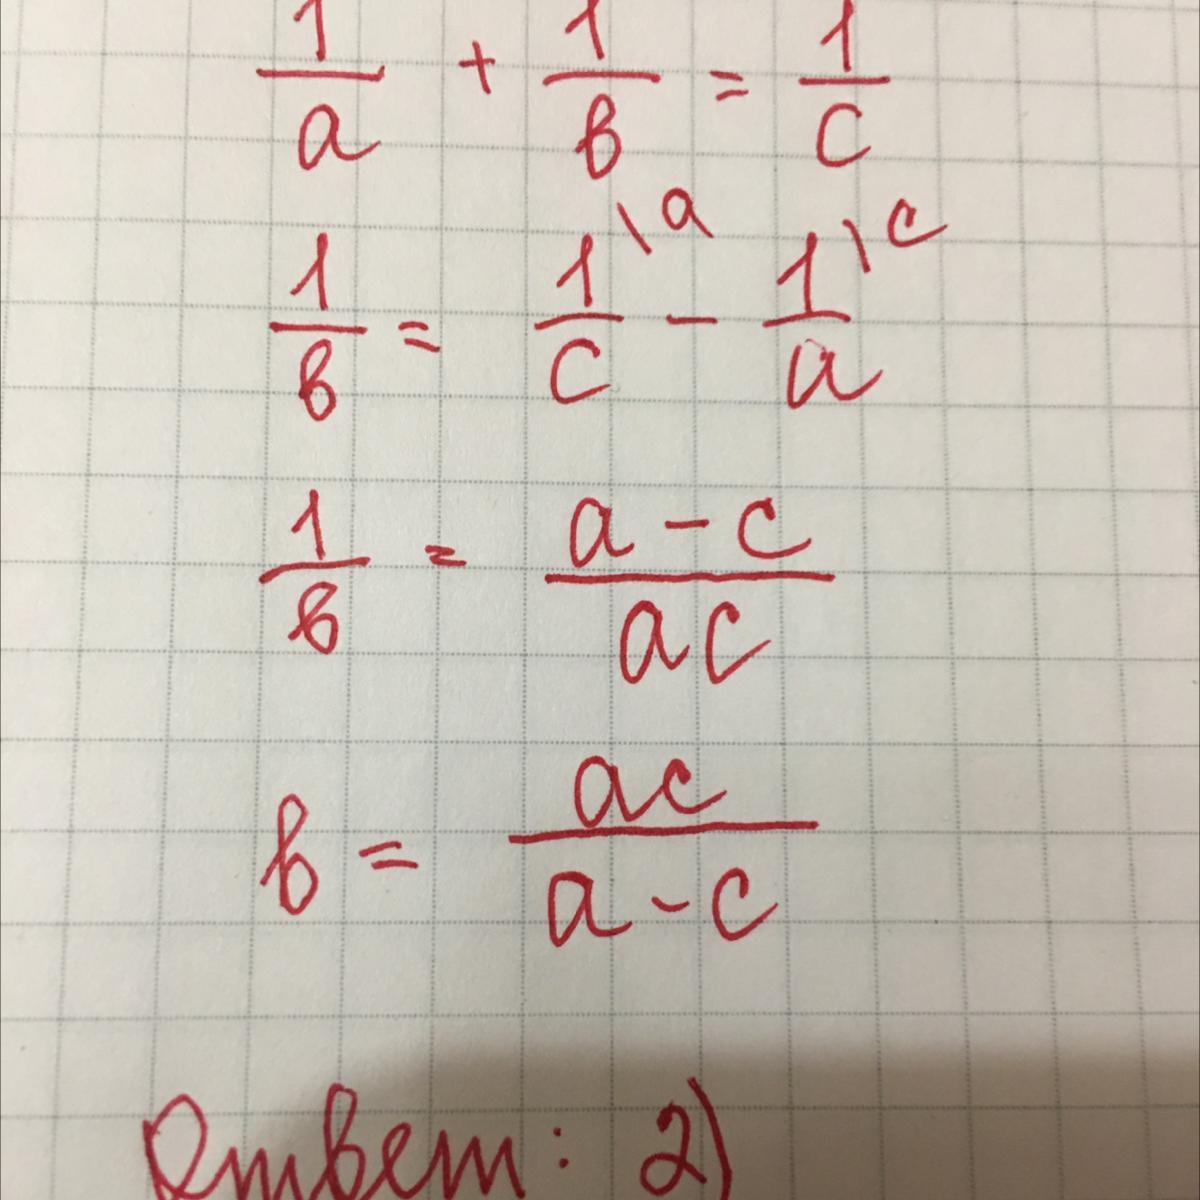 1/a + 1/в = 1/c
1/в = 1\a/c - 1\c/a
1/в = a - c/ac
в = ac/a - c
Ответ: 2)